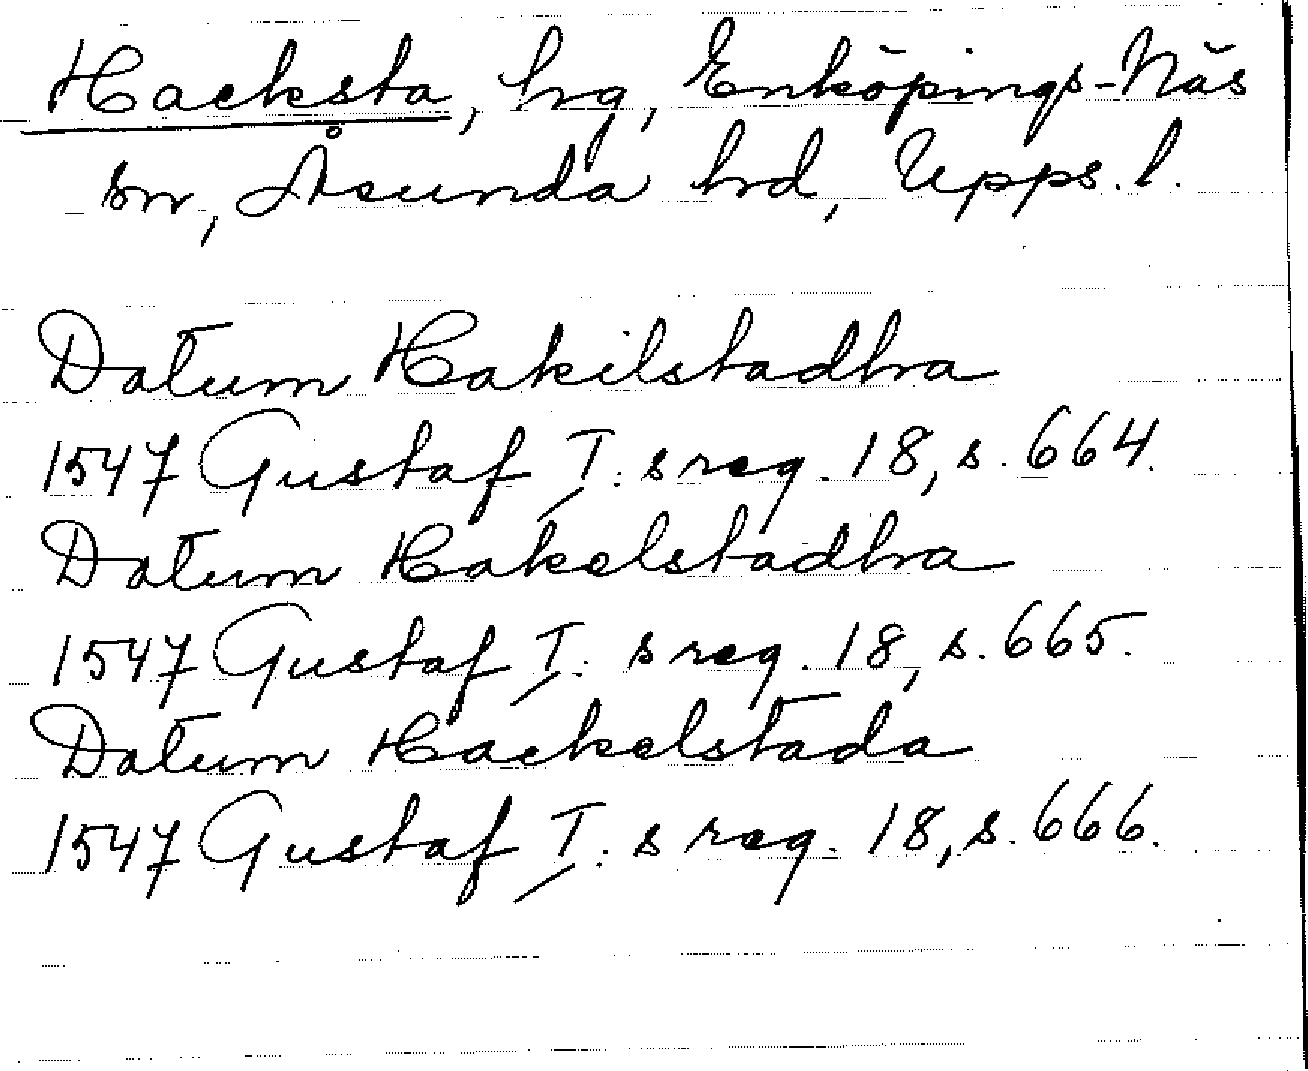 Hacksta, hrg, Enköpings-Näs
sn, Åsunda hrd, Upps. l.
Datum Hakilstadhra
1547 Gustaf I:s reg. 18, s. 664.
Datum Hakelstadhra
1547 Gustaf I:s reg. 18, s. 665.
Datum Hackelstada
1547 Gustaf I:s reg. 18, s. 666.